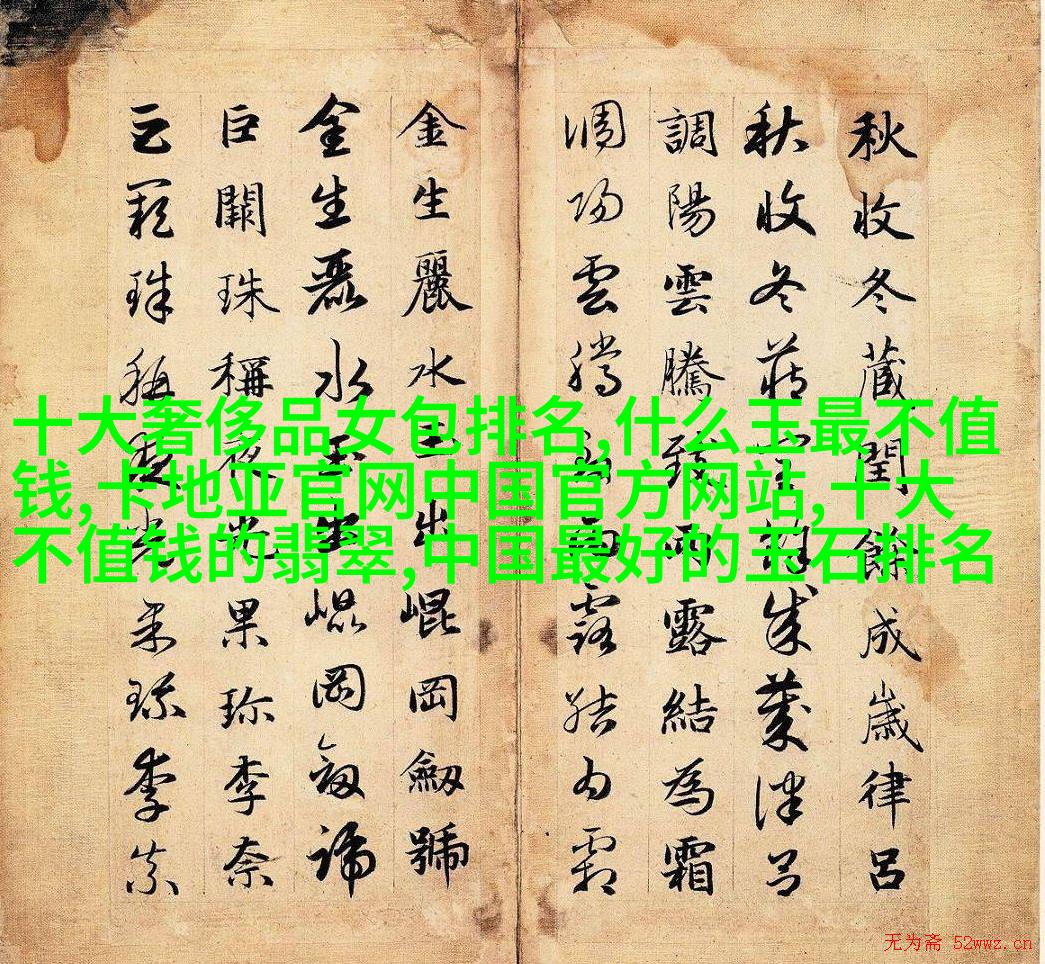 十大奢侈品女包排名,什么玉最不值
钱,卡地亚官网中国官方网站,十大
不值钱的翡翠,中国最好的玉石排名
秋收冬藏閏餘成歲律呂
秋收冬藏閏餘成歲律呂
調陽雲騰致雨露結為霜
調陽雲騰致雨露結為霜
金生麗水玉出崐岡劒號
金生麗水玉出崐岡劒號
巨闕珠稱夜光果珎李奈
巨闕珠稱夜光果珎李柰
无为斋 52wwz.cn